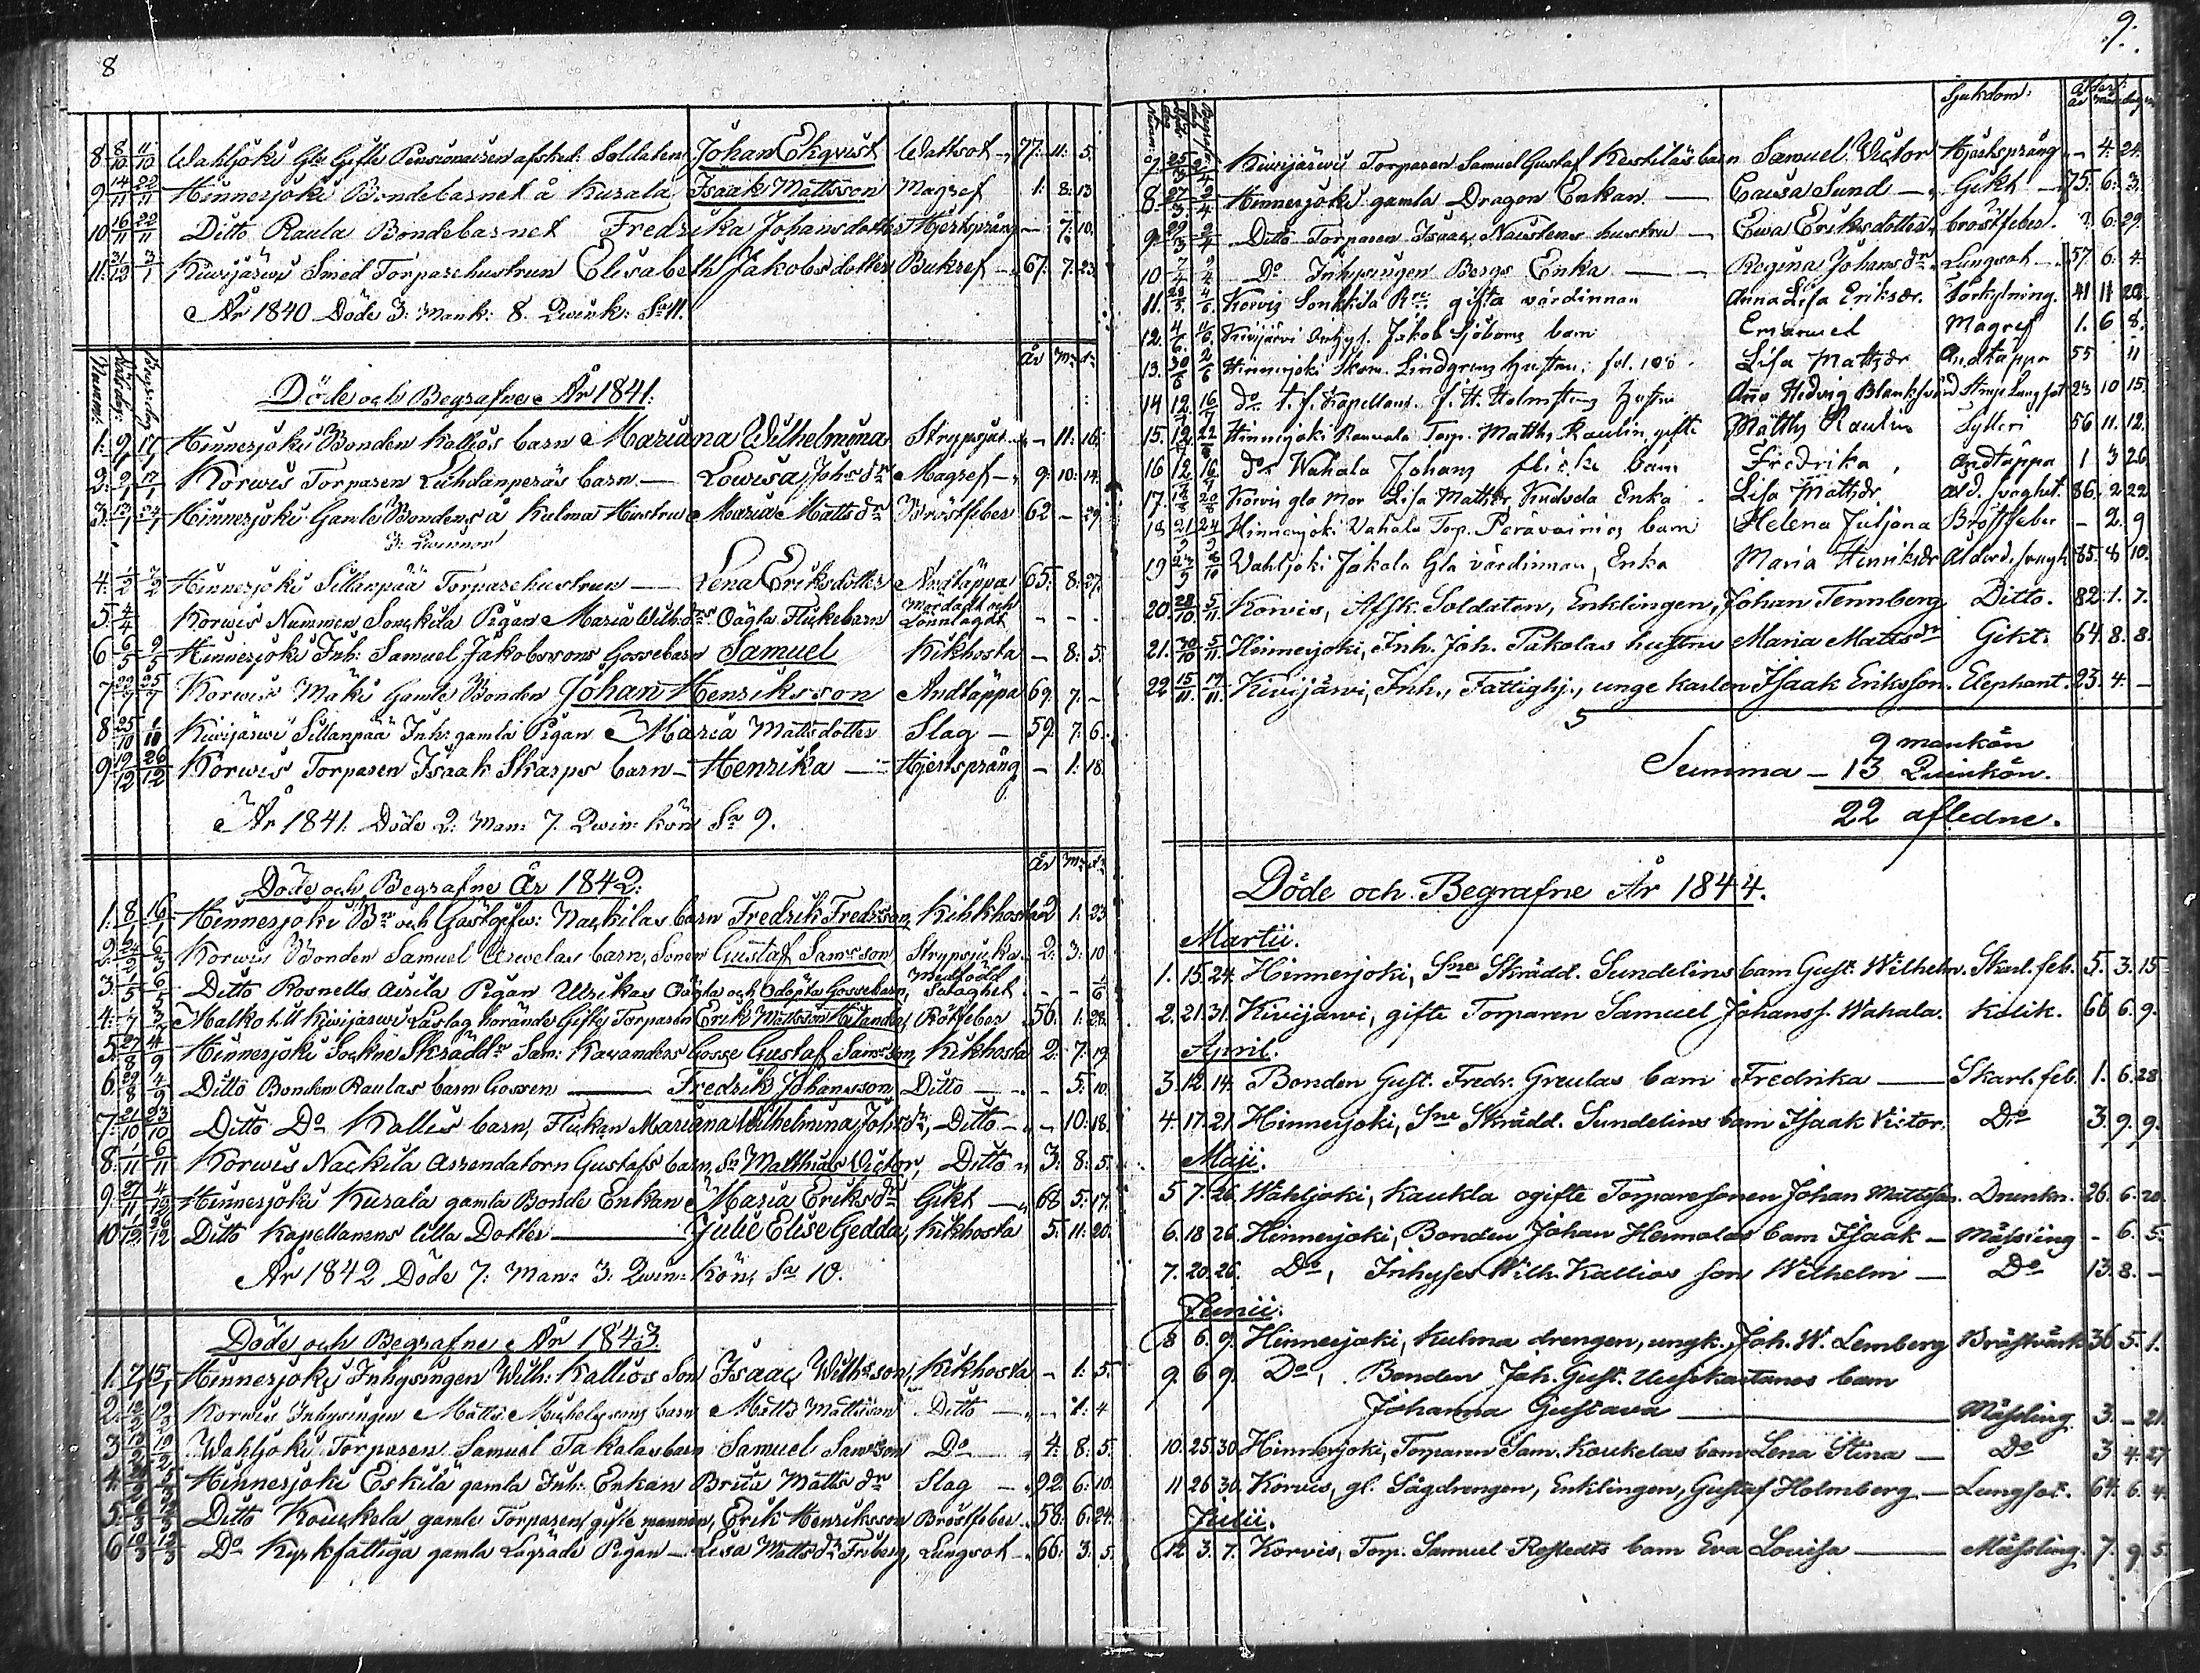 8
8 8/10 11/10 Wahljoki Gle Gifte Pensionairen afsked. Soldaten Johan Ekqvist Wattsot 77. 11. 5.
9 14/11 22/11 Hinnerjoki Bondebarnet å Kurala Isaak Mattsson Magref 1: 8: 13
10 16/11 22/11 Ditto Raula Bondebarnet Fredrika Johansdotter Hjertsprång — 7: 10.
11: 31/12 3/1 Kiwijärwi Smed Torparehustrun Elisabeth Jakobsdotter Bukref 67. 7. 23.
År 1840 Döde 3: Mank: 8. Qwink: Sa 11.
År M: D:
Döde och Begrafne År 1841.
1: 9/1 17/1 Hinnerjoki Bonden Kallios barn Mariana Wilhelmina Strypsjuk — 11: 16.
2: 9/1 17/1 Korwis Torparen Luhdanperäs barn — Lowisa Johsdr Magref — 9: 10: 14.
3: 13/1 24/1 Hinnerjoki Gamle Bondens å Kulma Hustru Maria Mattsdr Bröstfeber 62 — 29
3: Qwinnor
4: 1/2 7/2 Hinnerjoki Sillanpää Torparehustrun — Lena Eriksdotter Andtäppa 65: 8: 27.
5: 4/4 Korwis Nummen Sonkkila Pigan Maria Wilh:drs Oägta Flickebarn Mördadt och Lönnlagdt - - -
6 6/5 9/5 Hinnerjoki Inh: Samuel Jakobssons Gossebarn Samuel Kikhosta — 8: 5.
7 22/7 25/7 Korwis Mäki Gamle Bonden Johan Henriksson Andtäppa 69. 7. -
8 25/10 1/11 Kiwijärwi Sillanpää Inh: gamla Pigan Maria Mattsdotter Slag — 59. 7: 6.
9: 19/12 26/12 Korwis Torparen Isaak Skarps barn — Henrika — Hjertsprång — 1: 18.
År 1841. Döde 2: Man: 7. Qwin: kön Sa 9.
År M: D:
Döde och Begrafne År 1842:
1: 8/1 16/1 Hinnerjoki Bn och Gästgifw: Nackilas barn Fredrik Fredrsson, Kikhosta 2 1: 23
2: 24/2 6/3 Korwis Bonden Samuel Arwelas barn, Sonen Gustaf Samsson Strypsjuka 2: 3: 10
3: 5/5 6/5 Ditto Rosnells Airila Pigan Ulrikas Oägta och Odöpta Gossebarn, Medfödd Swaghet - - 1/6
4: 1/7 3/7 Malko t. U Kiwijärwi Låslag hörande Gifte Torparen Erik Mattsson Helander, Rötfeber 56. 1: 28.
5: 27/8 4/9 Hinnerjoki Sockne Skräddr Sam: Kavanders Gosse Gustaf Samsson, Kikhosta 2: 7: 19
6 29/8 4/9 Ditto Bonden Raulas barn Gossen — Fredrik Johansson Ditto — - 5: 10.
7: 21/10 23/10 Ditto Do Kallis barn, Flickan Mariana Wilhelmina Johsdr, Ditto — - 10: 18.
8: 1/11 6/11 Korwis Nackila Arrendatorn Gustafs barn, Sn Matthias Victor, Ditto 3: 8: 5.
9: 27/11 4/12 Hinnerjoki Kurala gamla Bonde Enkan Maria Eriksdr Gikt — 68 5: 17.
10. 19/12 26/12 Ditto Kapellanens lilla Dotter — Julie Elise Gedda, Kikhosta 5: 11: 20.
År 1842 Döde 7: Man: 3: Qwin: Kön, Sa 10.
Döde och Begrafne År 1843.
1: 7/1 15/1 Hinnerjoki Inhysingen Wilh: Kallios Son Isaac Wilhsson, Kikhosta - 1: 5.
2: 12/2 19/2 Korwis Inhysingen Matts Michelssons barn Matts Mattsson Ditto — 1: 4
3 Wahljoki Torparen Samuel Takalas barn Samuel Samsson Do — 4: 8: 5.
4: Hinnerjoki Eskilä gamla Inh: Enkan Brita Mattsdr Slag — 92: 6: 10.
5: Ditto Koukela gamle Torparen, gifte mannen, Erik Henriksson Bröstfeber 58: 6: 24.
6 10/3 12/3 Do Kyrkfattiga gamla Lägrade Pigan — Lisa Mattsdr Friberg, Lungsot 66: 3: 5.
9.
Sjukdom. Ålder: år mån: dag:
7. 25/3 2/4 Kiwijärwi Torparen Samuel Gustaf Kestiläs barn Samuel Victor Hjertsprång — 4: 24.
8. 27/3 2/4 Hinnerjoki gamla Dragon Enkan — Caisa Lund — Gikt — 75. 6: 3.
9: 29/3 2/4 Ditto Torparen Isaac Naistens hustru — Ewa Eriksdotter, bröstfeber. ?. 6: 29.
10 7/4 9/4 Do Inhysingen Bergs Enka — Regina Johansdr Lungsot 57. 6: 4.
11. 28/5 4/6 Korvis Sonkkila Rrs gifta värdinnan Anna Lisa Eriksdr. Förkylning. 41 11 28.
12. 4/6 11/6 Kivijärvi Inhys. Jakob Sjöbergs barn Emanuel Magref 1. 6 8.
13. 30/6 2/6 Hinnerjoki Skom. Lindgrens hustru; fol. 100. Lisa Mattsdr Andtäppa 55 11
14 12/7 16/7 do t. f. Kapellans. f. H. Holmstens hustru Anna Hedvig Lungsot 23 10 15.
15. 19/7 22/8 Hinnerjoki Rauvala Torp. Matths Raulin, gifte Matths Raulin Sylleri 56 11. 12.
16 12/7 16/7 do Wahala Johans flicke barn Fredrika, Andtäppa 1 3 26
17. 14/8 20/8 Korvis gla mor Lisa Mattsdr, Kudsela Enka Lisa Mattsdr ård. svaghet. 86. 2 22
18 21/9 24/9 Hinnerjoki Vahala Torp. Perävainios barn Helena Juljana Bröstfeber - 2. 9
19 27/9 8/10 Vahljoki Jakala Gla värdinnan, Enka Maria Henriksdr Ålderd. svagh. 85. 8 10.
20. 28/10 5/11 Korvis, Afsk. Soldaten, Enklingen, Johan Tennberg Ditto. 82. 1. 7.
21. 30/10 5/11 Hinnerjoki, Inh. Joh. Pakolas hustru Maria Mattsdr Gikt. 64. 8. 8.
22 15/11 19/11 Kivijärvi, Inh., Fattighj., unge karlen Isaak Eriksson. Elephant. 23. 4. —
9 mankön
Summa — 13 Quinkön.
22 aflidne.
Döde och Begrafne År 1844.
Martii.
1. 15. 24. Hinnerjoki, Sne Skrädd. Sundelins barn Gust. Wilhelm. Skarl. feb. 5. 3. 15
2. 21. 31. Kivijarvi, gifte Torparen Samuel Johanss. Wahala. Kolik. 66 6. 9.
April.
3. 12. 14. Bonden Gust. Fredr. Greulas barn Fredrika — Skarl. feb. 1. 6. 28
4. 17. 21. Hinnerjoki, Sne Skrädd. Sundelins barn Isaak Victor. Do 3. 9. 9.
Maji.
5. 7. 26. Wahljoki, Kaukla ogifte Torparesonen Johan Mattsson. Drunkn. 26. 6. 20.
6. 18 26. Hinnerjoki, Bonden Johan Hermolas barn Isaak — Mässling - 6. 5.
7. 20. 26. Do, Inhyses Wilh. Kallios son Wilhelm — Do 13. 8. —
Junii.
8 6. 9. Hinnerjoki, Kulma drengen, ungk., Joh. W. Lemberg Bröstvärk 36 5. 1.
9. 6 9. Do, Bonden Joh. Gust. Uusikartanos barn
Johanna Gustava — Mässling 3. — 21.
10. 25. 30. Hinnerjoki, Torparen Sam. Koukelas barn Lena Stina — Do 3 4. 27
11 26 30. Korvis, gl. Sågdrengen, Enklingen, Gustaf Holmberg — Lungsot. 64. 6. 4.
Julii.
12 3. 7. Korvis, Torp. Samuel Rostedts barn Eva Lovisa — Mässling. 7. 9. 5.